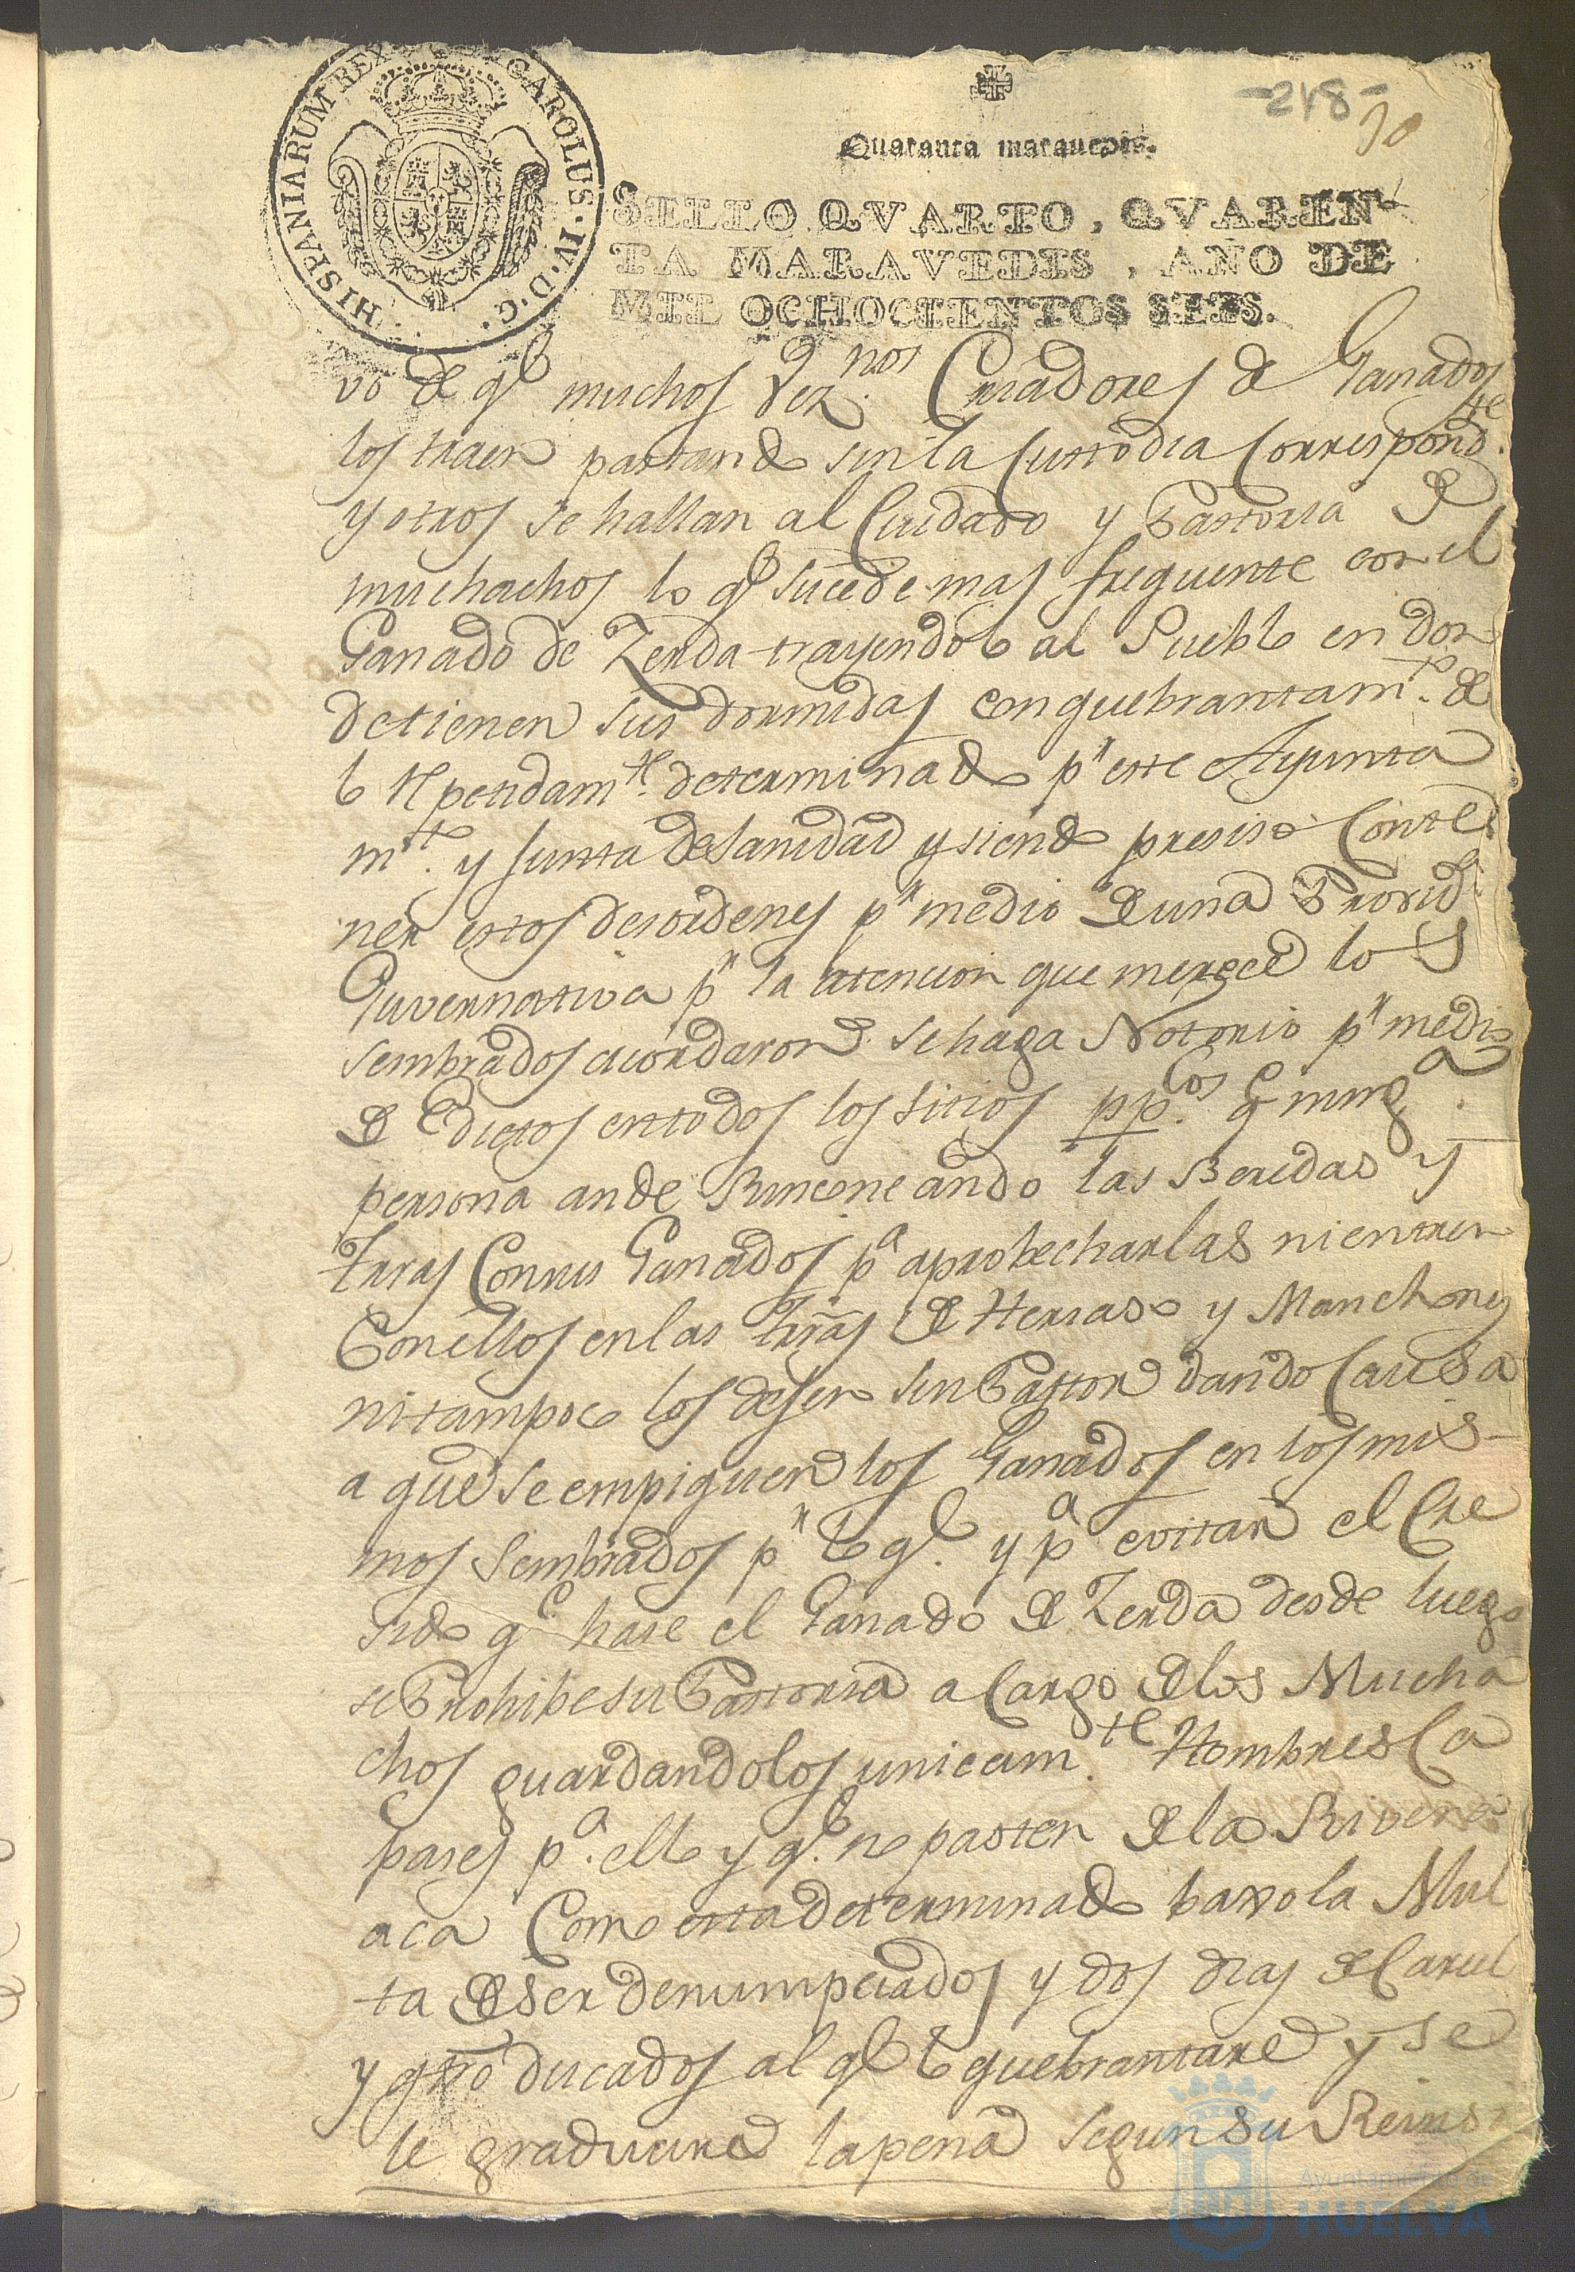 -248-
30
Quarenta maravedis.
HISPANIARUM REX CAROLUS·IV·D·G·
SELLO QVARTO, QVAREN-
TA MARAVEDIS, AÑO DE
MIL OCHOCIENTOS SEIS.
vo de qe muchos Veznos Criadores de Ganados
los traen pastando sin la Custodia Correspondte
y otros se hallan al Cuidado y Pastoria de
muchachos lo qe sucede mas frequente con el
Ganado de Zerda trayendolo al Pueblo en don
de tienen sus dormidas con quebrantamto de
lo repetidamte determinado pr este Ayunta
mto y Junta de Sanidad y siendo presiso Conte
ner estos desordenes pr medio de una Provida
Guvernativa pr la atencion que merece los
sembrados acordaron se haga Notorio pr medio
de Edictos en todos los sitios ppcos qe ninga
persona ande Rinconeando las Beredas y
trras Con sus Ganados pa aprobecharlas ni entren
Con ellos en las trras de Heriaso y Manchones
ni tampoco los dejen sin Pastor dando Causa
a que se empiquen los Ganados en los mis-
mos Sembrados pr lo qe y pa evitar el Cre
sido qe hase el Ganado de Zerda desde luego
se Prohibe su Pastoria a Cargo de los Mucha
chos guardandolos unicamte Hombres Ca
pases pa ello y qe no pasten de la Rivera
aca Como esta determinado baxo la Mul
ta de ser denumpciados y dos dias de Carcel
y qtro ducados al qe lo quebrantare y se
le graduará la pena segun su Reinsi
Ayuntamiento de
HUELVA